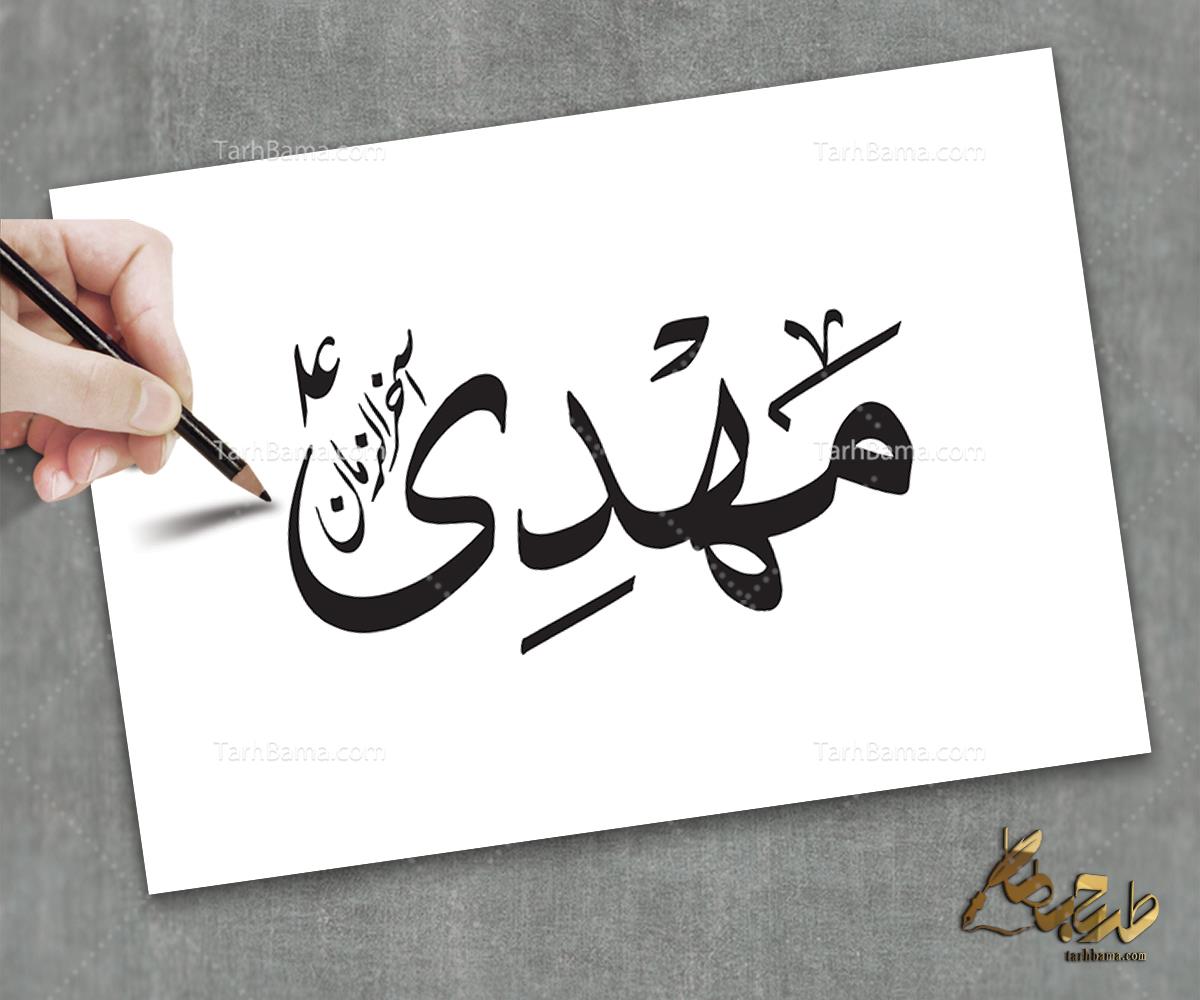 مَهْدِی
آخرالزمان
ع
TarhBama.com TarhBama.com
TarhBama.com TarhBama.com
TarhBama.com TarhBama.com
طرح با ما
tarhbama.com